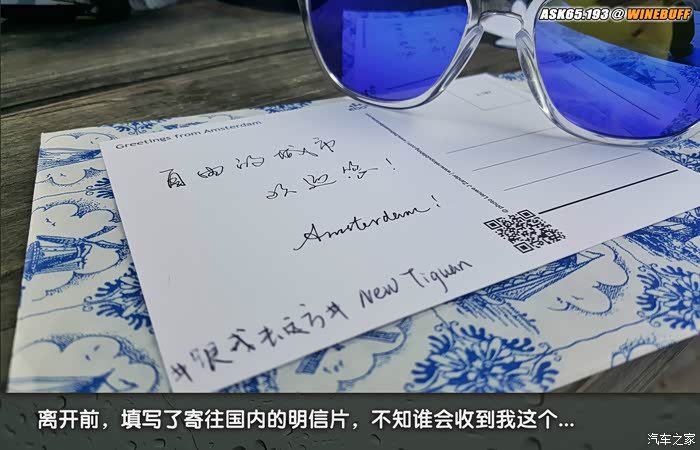 ASK65.193 @ WINEBUFF
Greetings from Amsterdam
自由的城市
欢迎您！
Amsterdam!
#跟我去远方# New Tiguan
离开前，填写了寄往国内的明信片，不知谁会收到我这个...
汽车之家